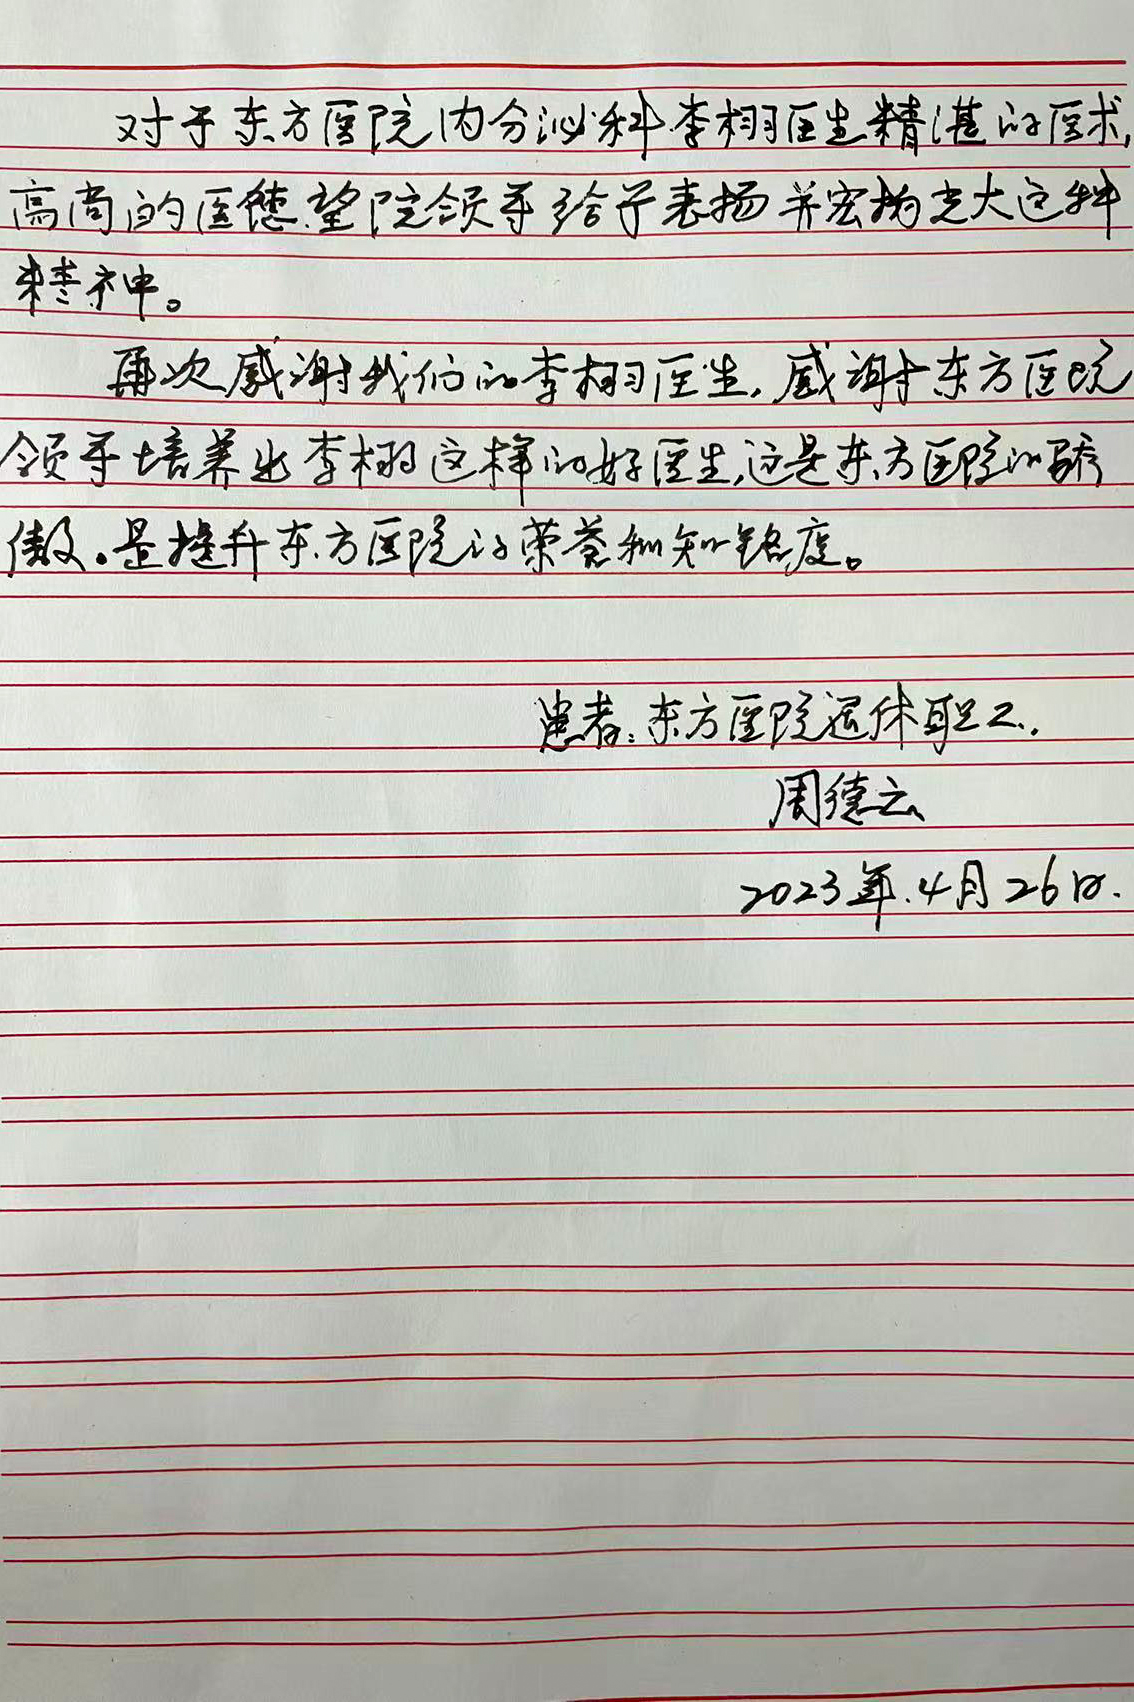 对于东方医院内分泌科李栩医生精湛的医术,
高尚的医德.望院领导给予表扬并宏扬光大这种
精神。
再次感谢我们的李栩医生,感谢东方医院
领导培养出李栩这样的好医生,这是东方医院的骄
傲。是提升东方医院的荣誉和知铭度。
患者:东方医院退休职工.
周德云
2023年.4月26日.